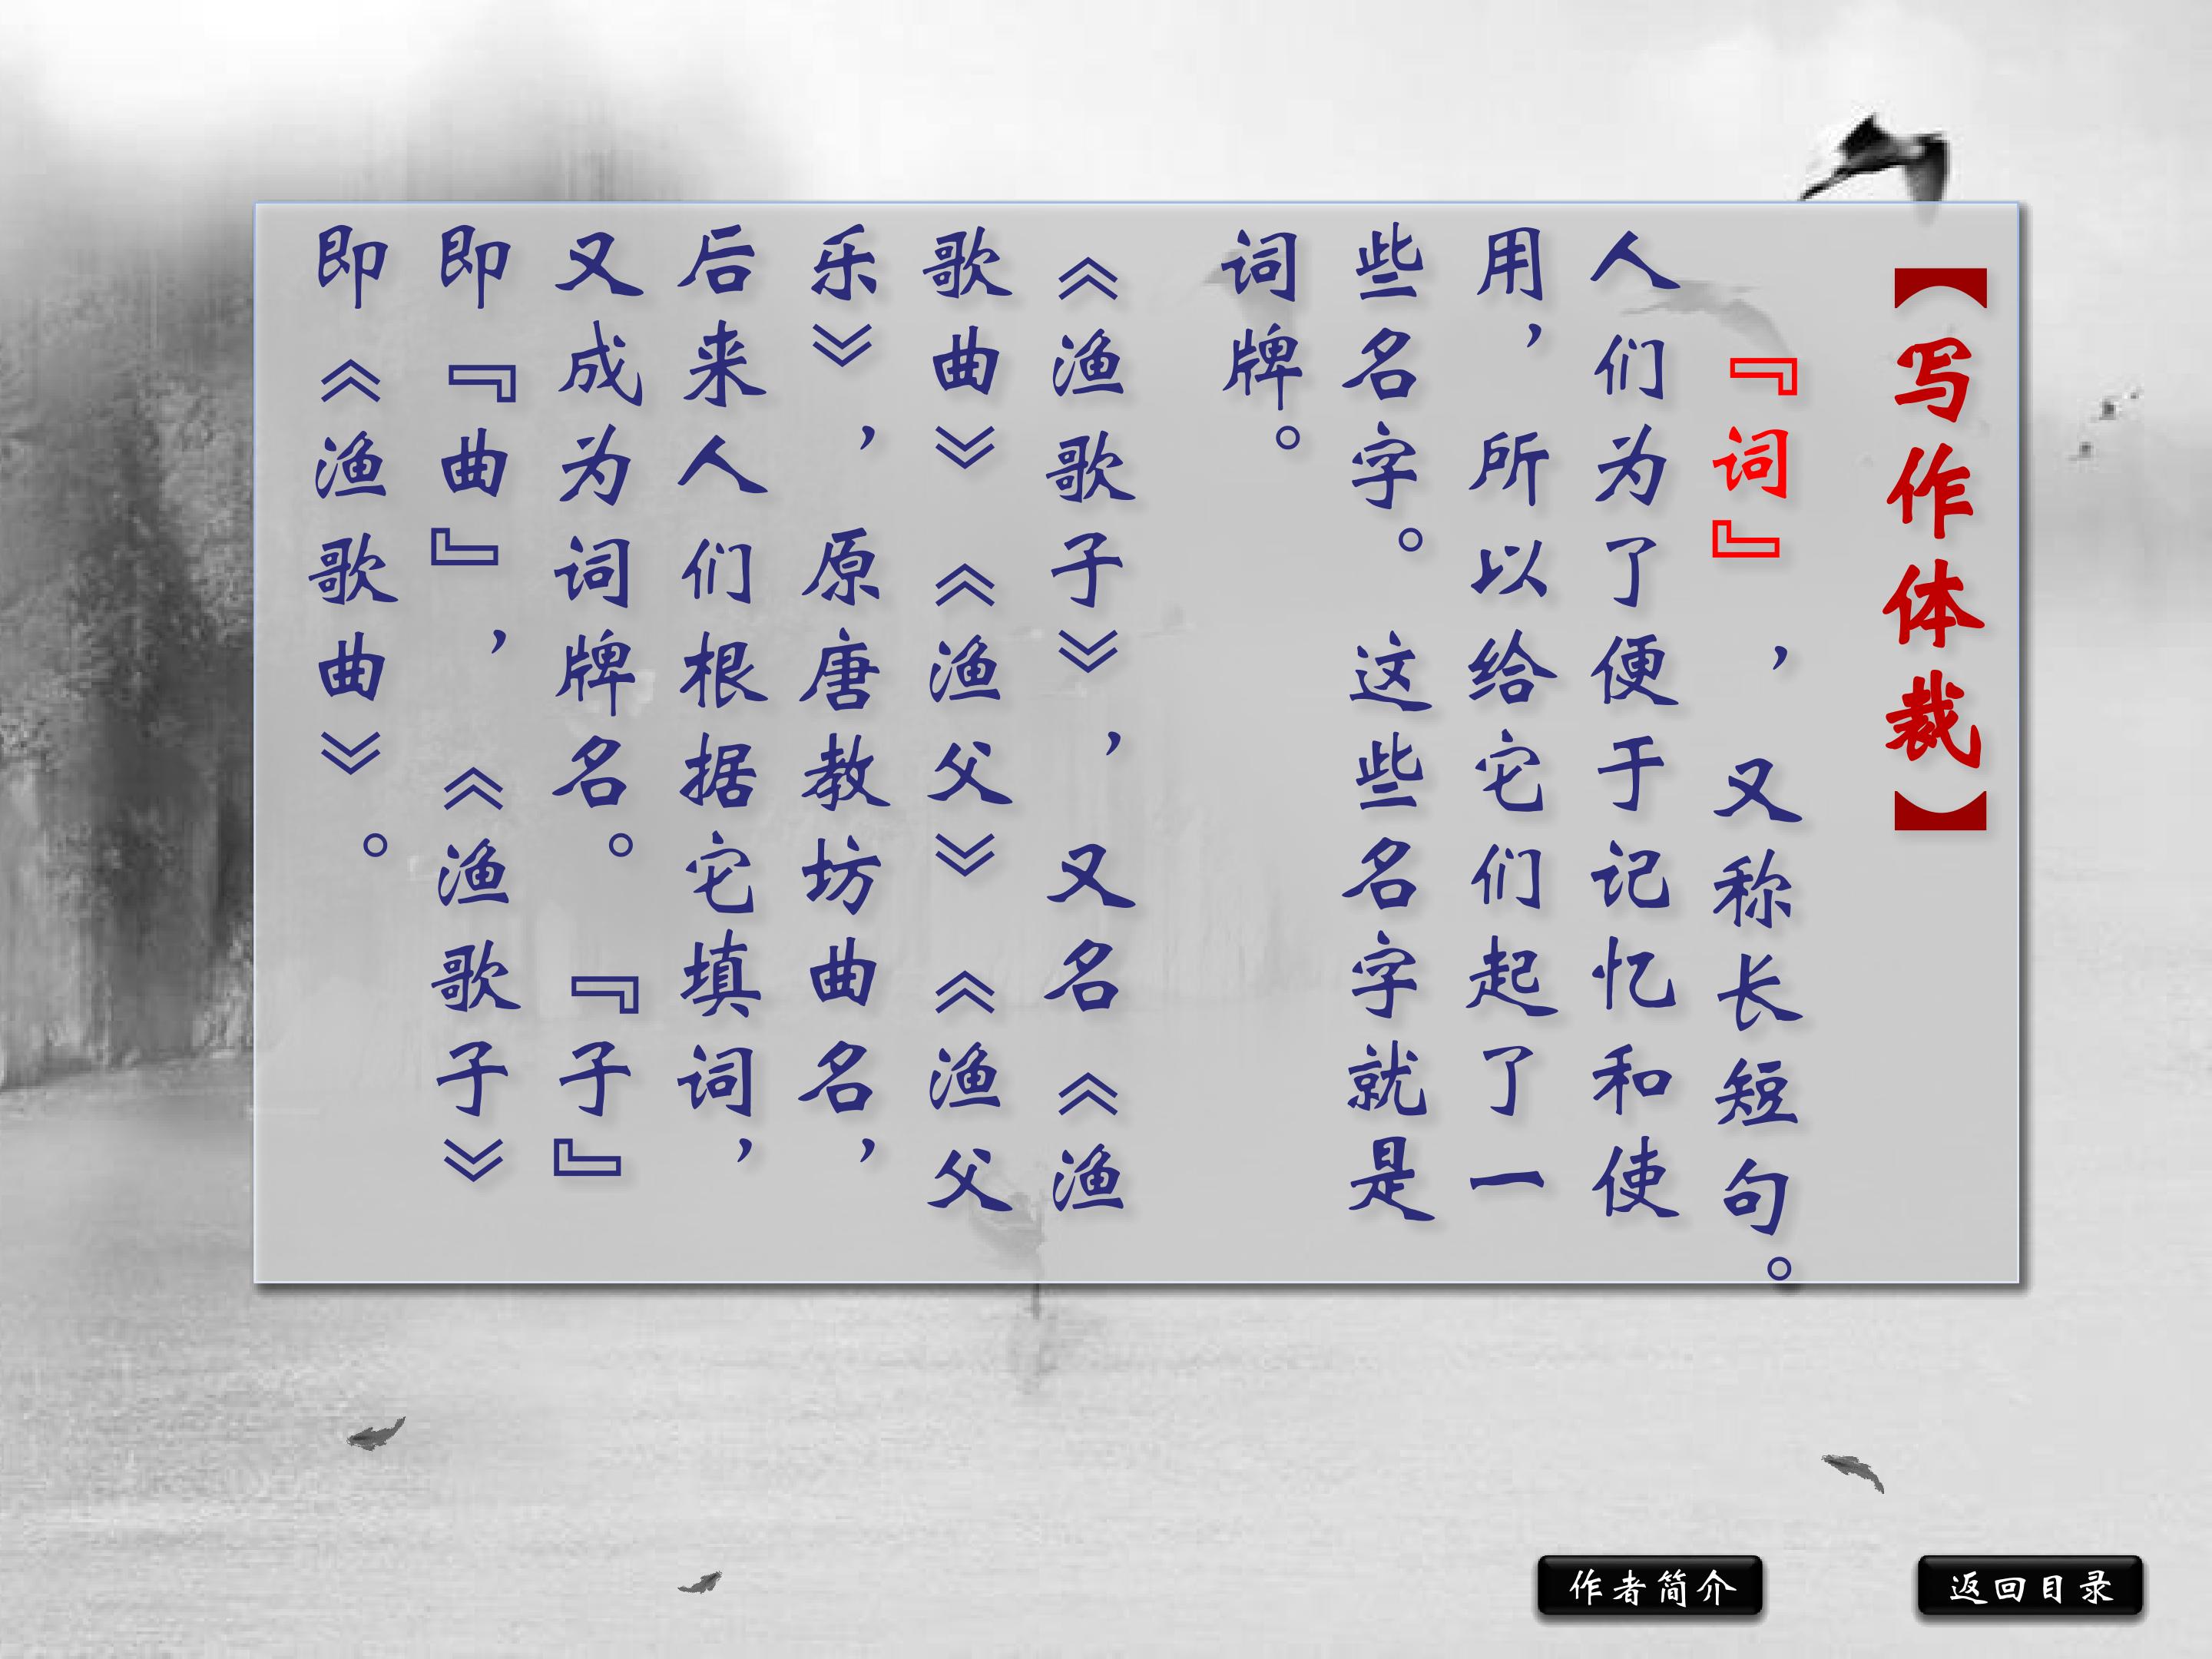 【写作体裁】
『词』，又称长短句。
人们为了便于记忆和使
用，所以给它们起了一
些名字。这些名字就是
词牌。
《渔歌子》，又名《渔
歌曲》《渔父》《渔父
乐》，原唐教坊曲名，
后来人们根据它填词，
又成为词牌名。『子』
即『曲』，《渔歌子》
即《渔歌曲》。
作者简介
返回目录